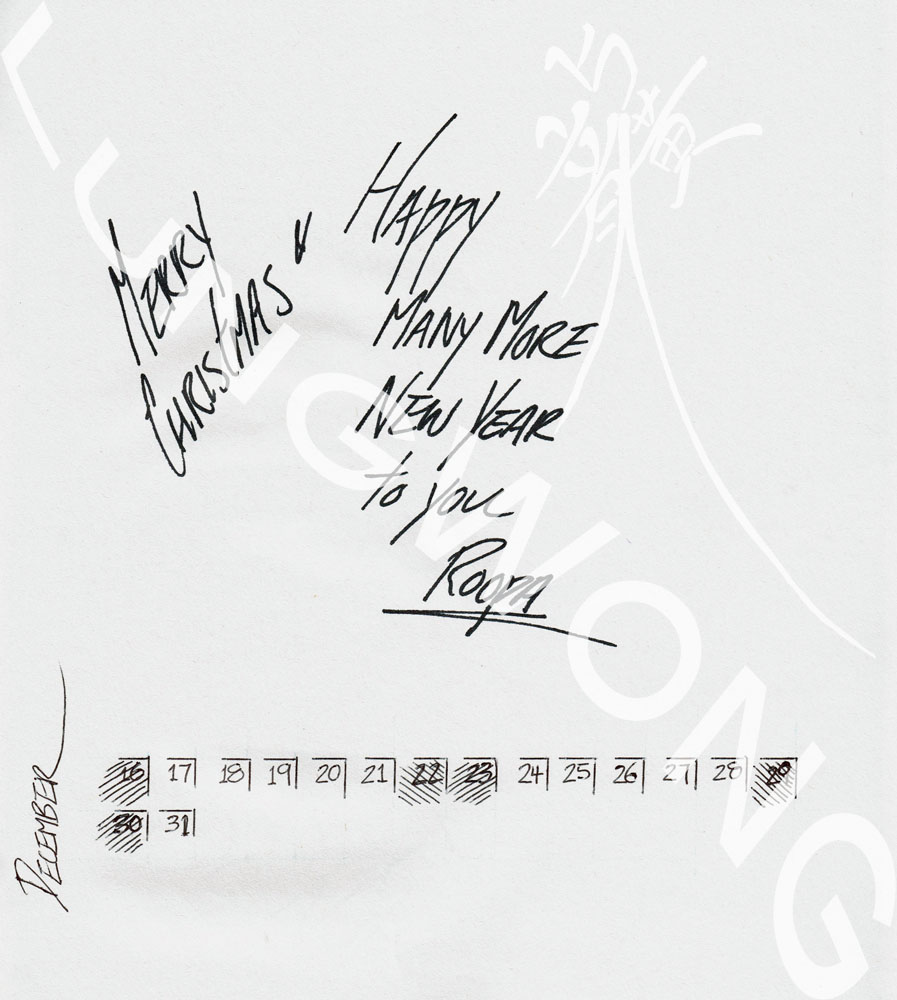 MERRY
CHRISTMAS
HAPPY
MANY MORE
NEW YEAR
to you
ROOPA
DECEMBER
16 17 18 19 20 21 22 23 24 25 26 27 28 29
30 31
WONG